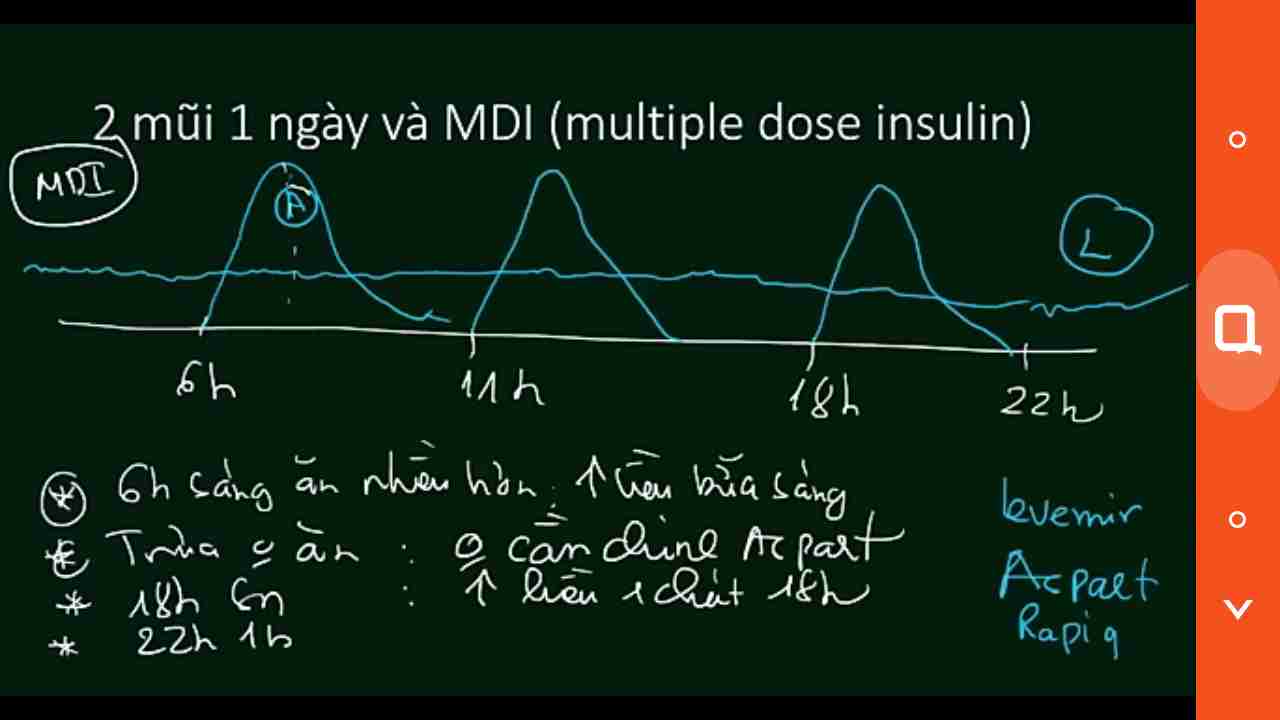 2 mũi 1 ngày và MDI (multiple dose insulin)
MDI
A
L
6h 11h 18h 22h
* 6h sáng ăn nhiều hơn : ↑ liều bữa sáng
* Trưa ăn : cần chỉnh Acpart
* 18h : ↑ liều 1 chút 18h
* 22h
levemir
Acpart
Rapi